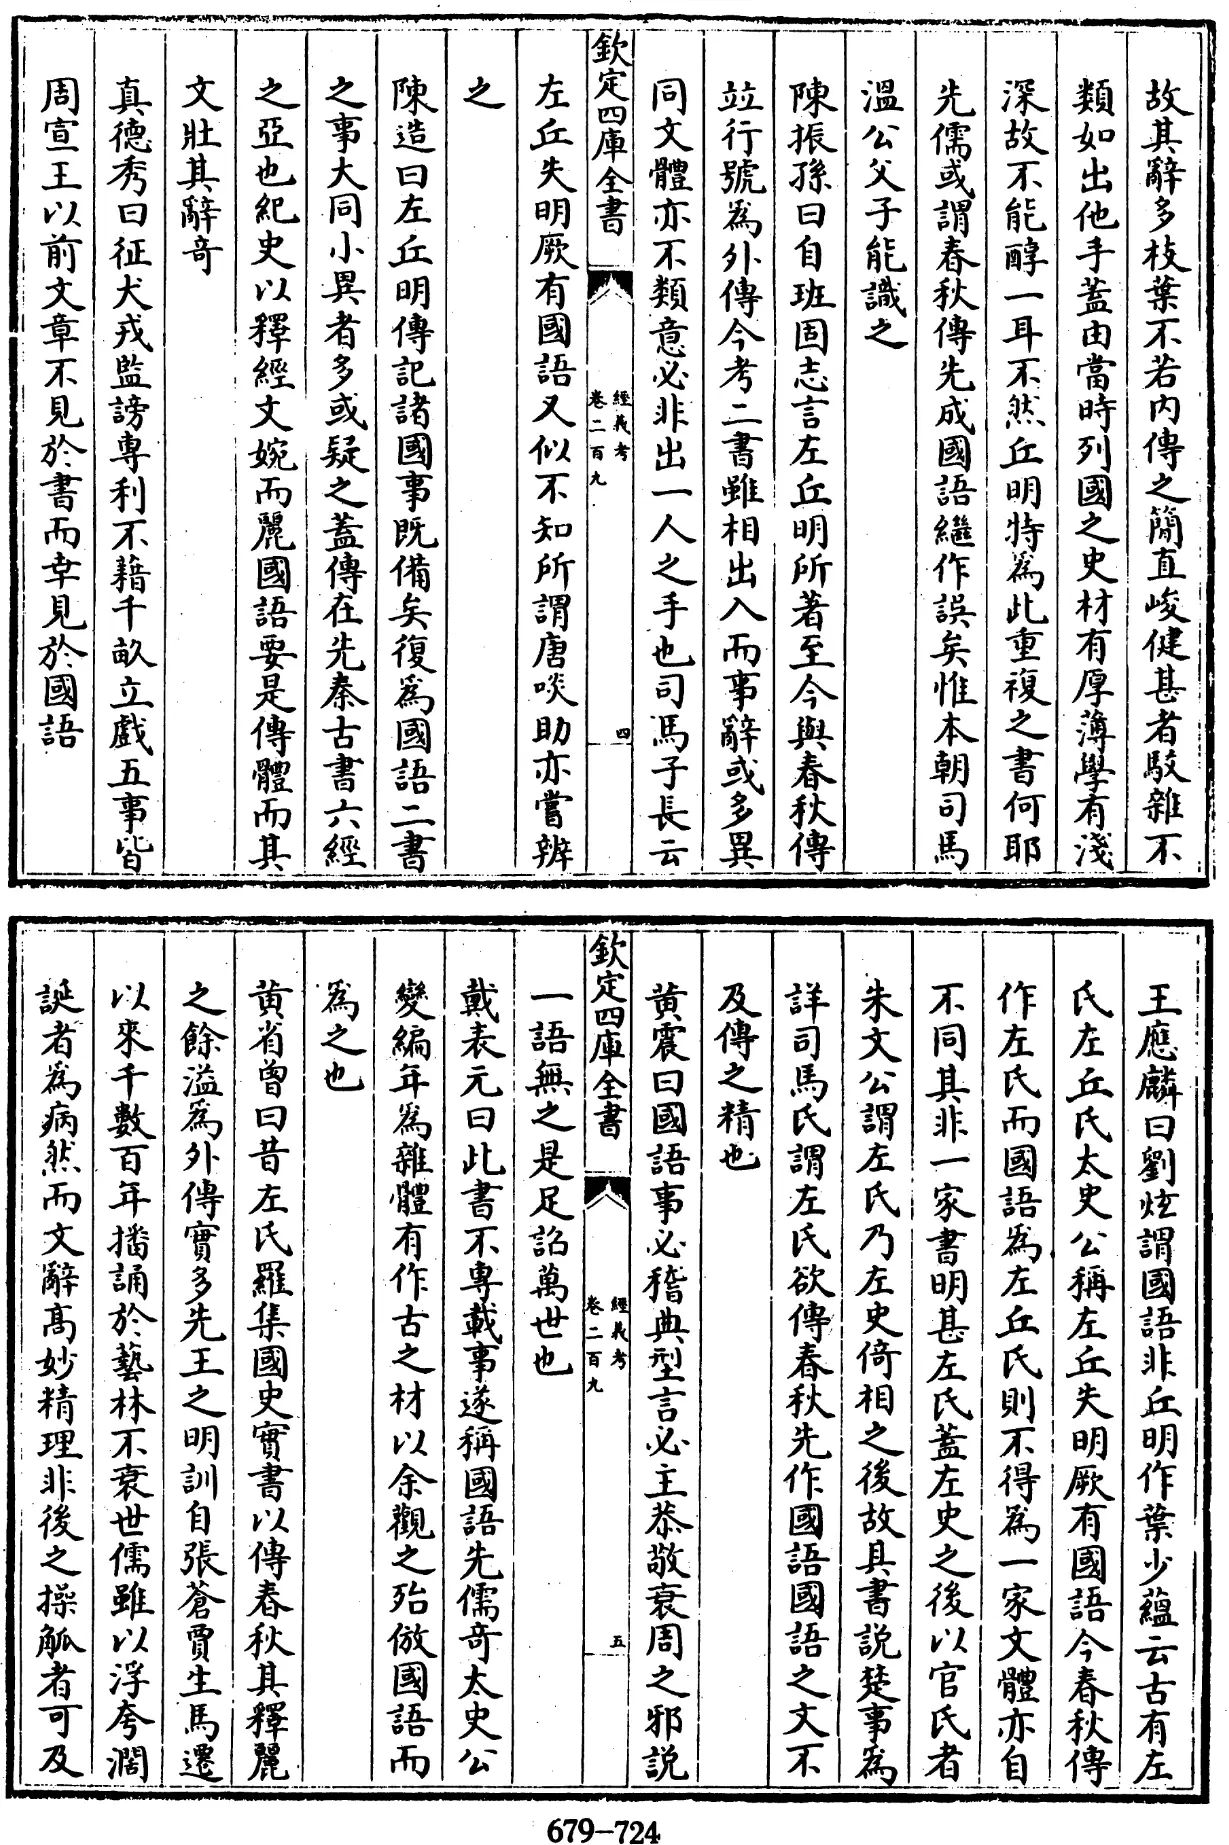 故其辭多枝葉不若内傳之簡直峻健甚者駁雜不
類如出他手蓋由當時列國之史材有厚薄學有淺
深故不能醇一耳不然丘明特為此重複之書何耶
先儒或謂春秋傳先成國語繼作誤矣惟本朝司馬
溫公父子能識之
陳振孫曰自班固志言左丘明所著至今與春秋傳
竝行號為外傳今考二書雖相出入而事辭或多異
同文體亦不類意必非出一人之手也司馬子長云
欽定四庫全書
經義考
卷二百九
四
左丘失明厥有國語又似不知所謂唐啖助亦嘗辨
之
陳造曰左丘明傳記諸國事既備矣復為國語二書
之事大同小異者多或疑之蓋傳在先秦古書六經
之亞也紀史以釋經文婉而麗國語要是傳體而其
文壯其辭奇
真德秀曰征犬戎監謗專利不藉千畝立戲五事皆
周宣王以前文章不見於書而幸見於國語
王應麟曰劉炫謂國語非丘明作葉少蘊云古有左
氏左丘氏太史公稱左丘失明厥有國語今春秋傳
作左氏而國語為左丘氏則不得為一家文體亦自
不同其非一家書明甚左氏蓋左史之後以官氏者
朱文公謂左氏乃左史倚相之後故其書説楚事為
詳司馬氏謂左氏欲傳春秋先作國語國語之文不
及傳之精也
黃震曰國語事必稽典型言必主恭敬衰周之邪説
欽定四庫全書
經義考
卷二百九
五
一語無之是足詔萬世也
戴表元曰此書不專載事遂稱國語先儒奇太史公
變編年為雜體有作古之材以余觀之殆倣國語而
為之也
黃省曾曰昔左氏羅集國史實書以傳春秋其釋麗
之餘溢為外傳實多先王之明訓自張蒼賈生馬遷
以來千數百年播誦於藝林不衰世儒雖以浮夸濶
誕者為病然而文辭高妙精理非後之操觚者可及
679-724